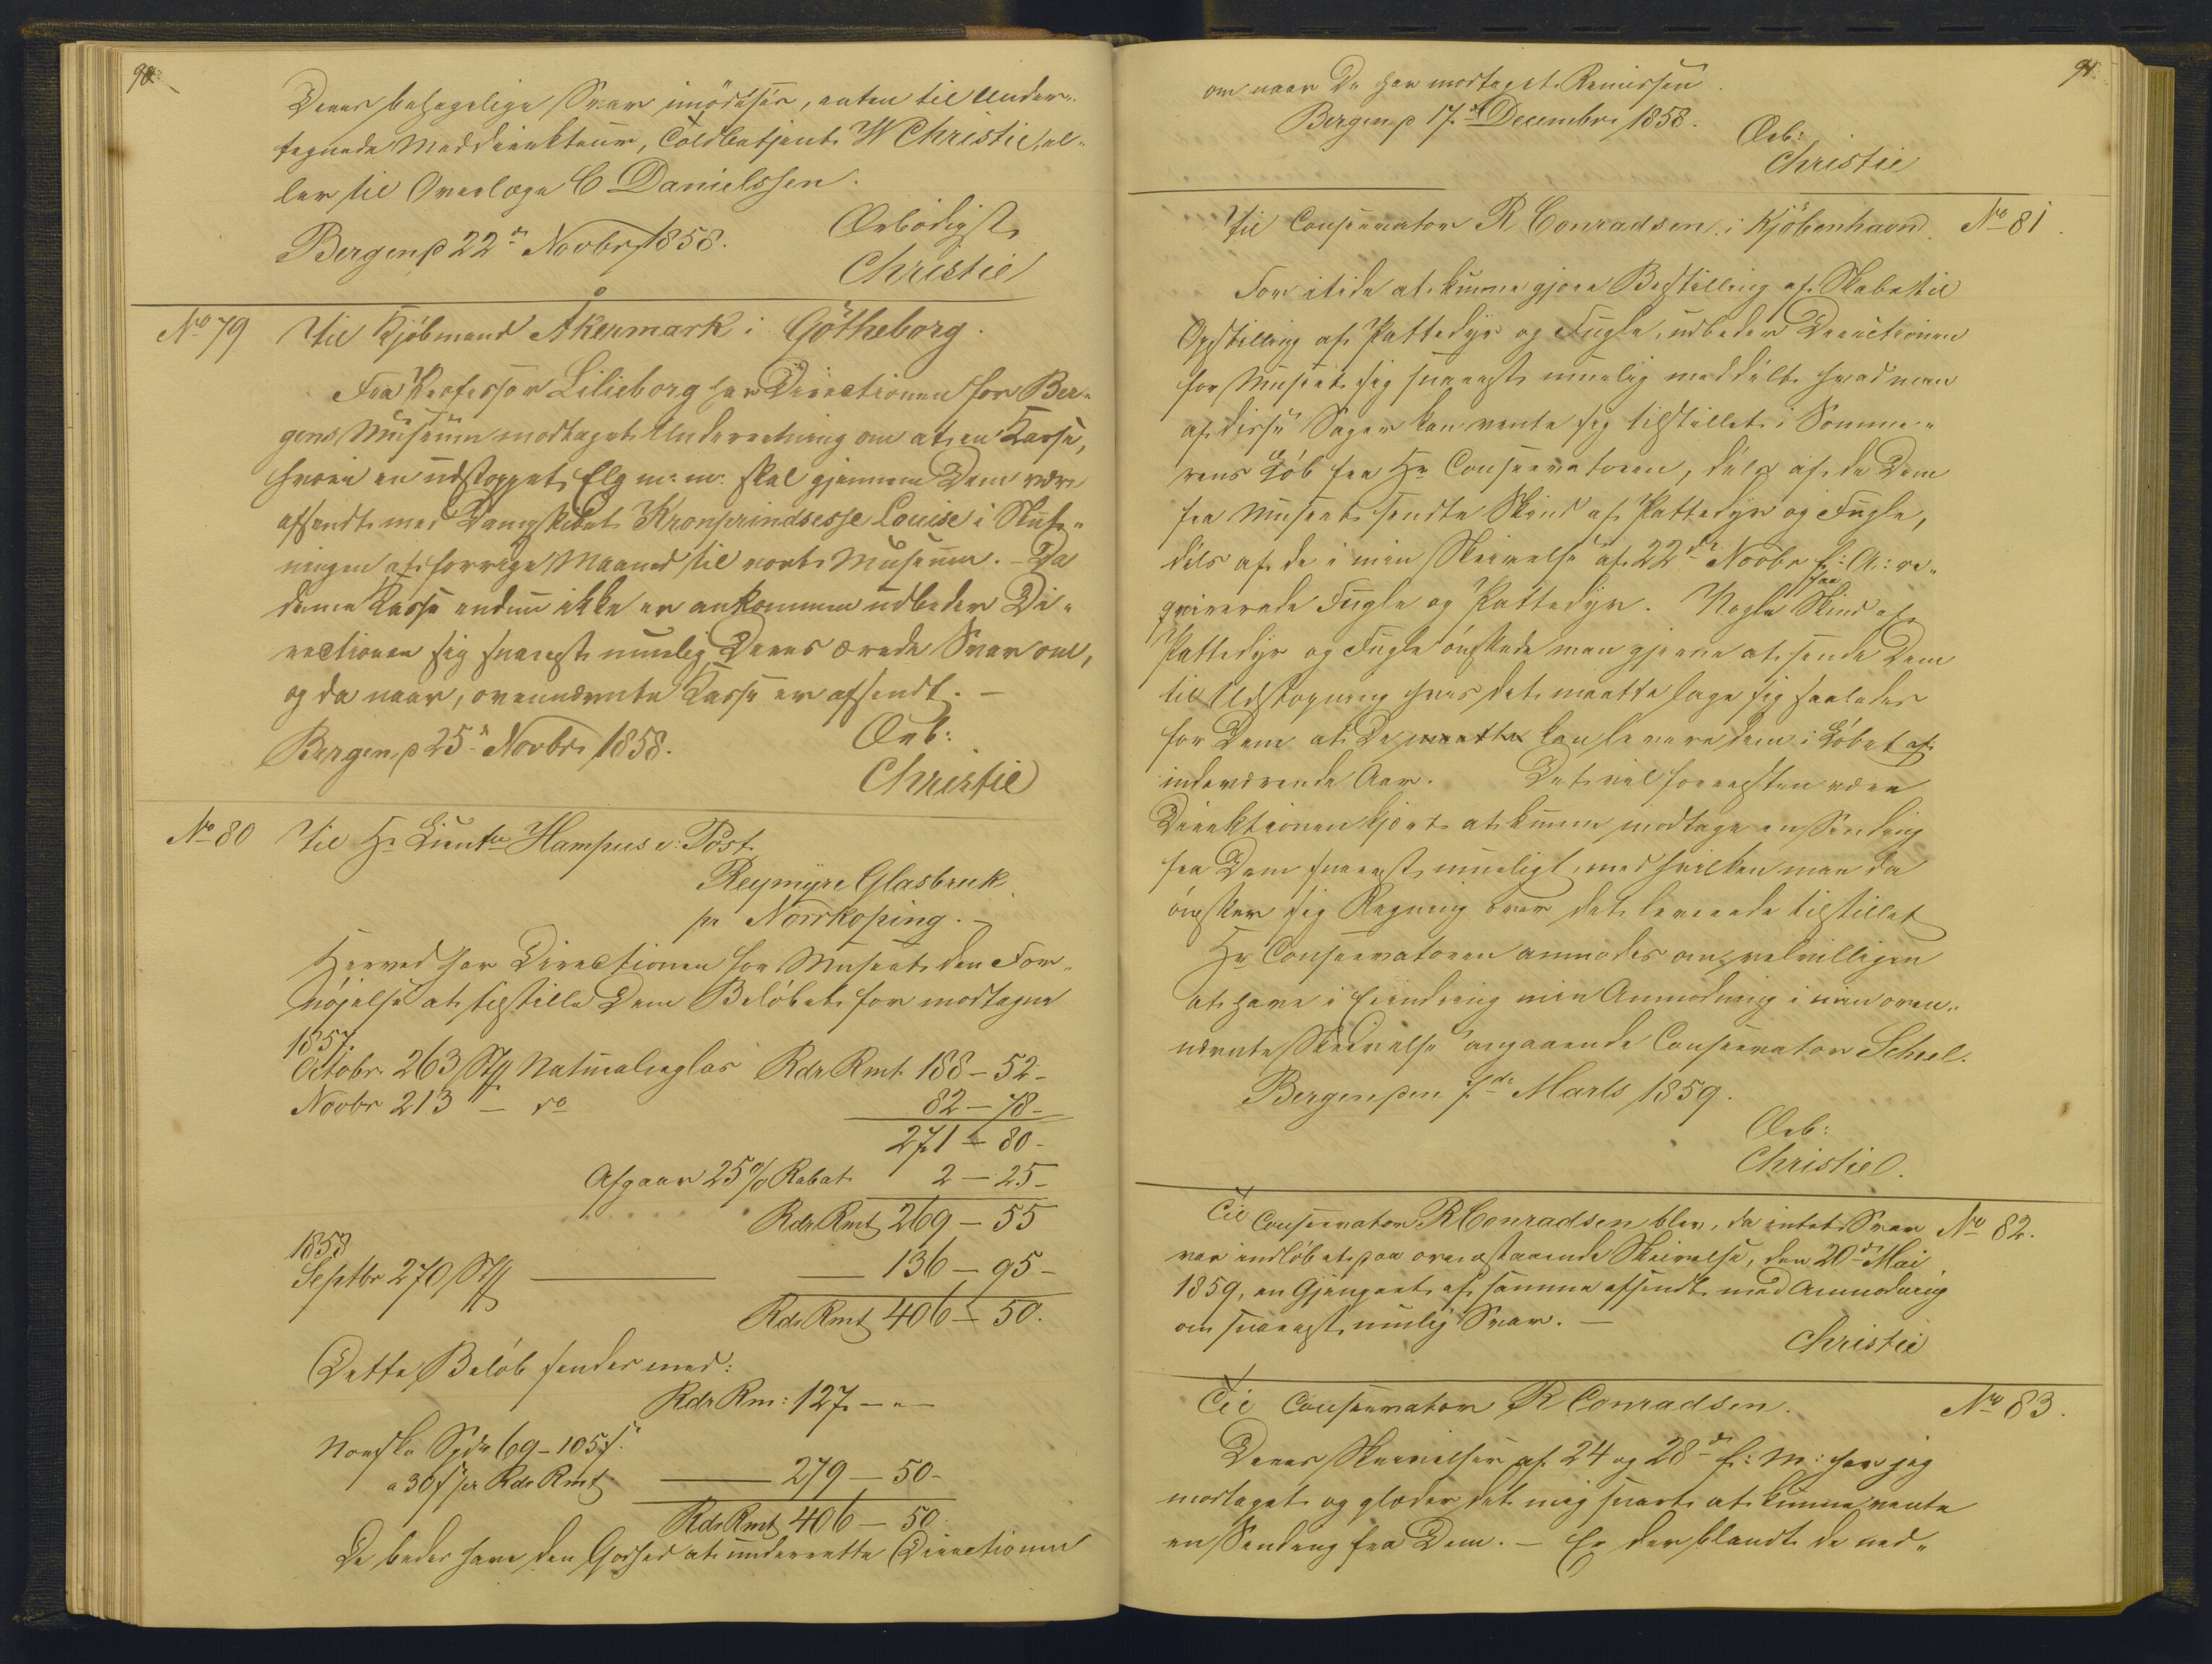 90.
Deres behagelige Svar imödesees, enten til Under„
tegnede Meddirekteur, Toldbetjent W Christie, el„
ler til Overlæge C Danielssen.
Bergen p 22de Novbr 1858.
Ærbödigst
Christie
No 79 Til Kjöbmand Åkermark i Götheborg.
Fra Professor Lilieborg har Directionen for Ber„
gens Museum modtaget Underretning om at en Kasse,
hvori en udstoppet Elg m: m: skal gjennem Dem være
afsendt med Dampskibet Kronprindsesse Louise i Slut„
ningen af forrige Maaned til vort Museum. – Da
denne Kasse endnu ikke er ankommen udbeder Di„
rectionen sig snarest muelig Deres ærede Svar om,
og da naar, ovennævnte Kasse er afsendt. –
Bergen p 25de Novbr 1858.
Ærb:
Christie
No 80 Til Hr Lieutn Hampus v: Post.
Reymyre Glasbruk
pr Norrkoping. –
Herved har Directionen for Museet den For„
nöjelse at tilstille Dem Belöbet for modtagne
1857.
Octobr 263 Stk Naturalieglas Rdr Rmt. 188 – 52 –
Novbr 213 – do 82 – 78 –
271 – 80 –
Afgaar 25 % Rabat 2 – 25 –
Rdr Rmt 269 – 55
1858
Septbr 270 Stk — — 136 – 95 –
Rdr Rmt 406 – 50.
Dette Belöb sendes med:
Rdr Rm: 127 – „ –
Norske Spdr 69 – 105 s.
a 30 s pr Rdr Rmt — 279 – 50 –
Rdr Rmt 406 – 50
De bedes have den Godhed at underrette Directionen
91.
om naar De har modtaget Remissen.
Bergen p 17de Decembr 1858.
Ærb:
Christie
Til Conservator R Conradsen i Kjöbenhavn. No 81.
For itide at kunne gjöre Bestilling af Skabe til
Opstilling af Pattedyr og Fugle, udbeder Directionen
for Museet sig snarest muelig meddeelt hvad man
af disse Sager kan vente sig tilstillet i Somme„
rens Löb fra Hr Conservatoren, deels af de Dem
fra Museet sendte Skind af Pattedyr og Fugle,
deels af de i min Skrivelse af 22de Novbr f: A: re„
qvirerede Fugle og Pattedyr. Nogle faa Skind af
Pattedyr og Fugle önskede man gjerne at sende Dem
til Udstopning hvis det maatte lage sig saaledes
for Dem at De maatte kan levere dem i Löbet af
indeværende Aar. Det vil forresten være
Direktionen kjært at kunne modtage en Sending
fra Dem snarest mueligt, med hvilken man da
önsker sig Regning over det leverede tilstillet
Hr Conservatoren anmodes om, velvilligen
at have i Erindring min Anmodning i min oven„
nævnte Skrivelse angaaende Conservator Scheel.
Bergen den 7de Marts 1859.
Ærb:
Christie.
Til Conservator R Conradsen blev, da intet Svar No 82.
var indlöbet paa ovenstaaende Skrivelse, den 20de Mai
1859, en Gjenpart af samme afsendt med Anmodning
om snarest muelig Svar. –
Christie
Til Conservator R Conradsen. No 83.
Deres Skrivelser af 24 og 28de f: M: har jeg
modtaget og glæder det mig snart at kunne vente
en Sending fra Dem. – Er der blandt de ned„